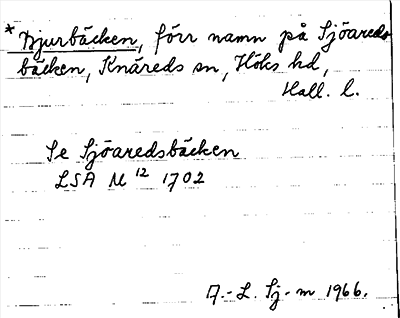 * Bjurbäcken, förr namn på Sjöareds-
bäcken, Knäreds sn, Höks hd,
Hall. l.
Se Sjöaredsbäcken
LSA M 12 1702
A.-L. Sj-m 1966.